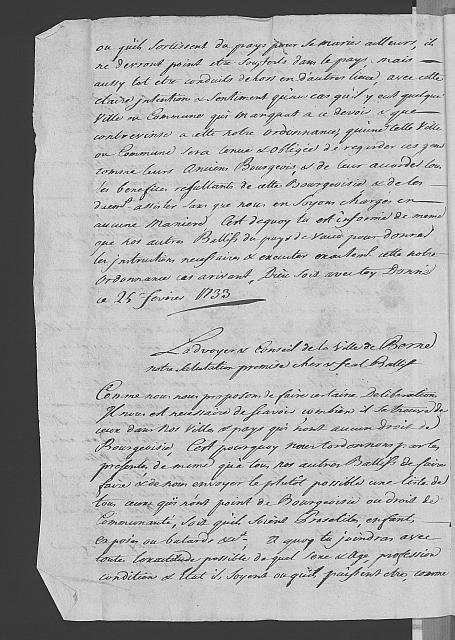 ou qu'ils sortissent du pays pour se marier ailleurs, il
ne devront point etre soufferts dans le pays, mais
aussy tot etre conduits dehors en d'autres lieux, avec cette
claire intention & sentiment qu'au cas qu'il y eut quelque
Ville ou Commune qui manquat a ce devoir & que
contrevinse a cette notre ordonnance, qu'une telle Ville
ou Commune sera tenue & obligée de regarder ces gens
comme leurs Anciens Bourgeois, & de leur accorder tous
les benefices resultants de cette Bourgeoisie & de les
assister sans que nous en soyons charges en
aucune Maniere. C'est dequoy tu est informé de meme
que nos autres Ballifs du pays de Vaud pour donner
les Instructions necessaires & executer exactement cette notre
Ordonnance cas arrivant, Dieu soit avec toy Donné
ce 25e fevrier 1733
Ladvoyer & Conseil de la Ville de Berne
notre salutation premise cher & feal Ballif
Comme nous nous proposons de faire certaine Deliberation
Il nous est necessaire de scavoir combien il se trouve de
ceux dans nos Ville & pays qui n'ont aucun droit de
Bourgeoisie, C'est pourquoy nous t'ordonnons par les
presentes, de meme que tous nos autres Ballifs de faire
faire & de nous envoyer le plutot possible une liste de
tous ceux qui n'ont point de Bourgeoisie ou droit de
Communauté, soit qu'ils soient Proselites, enfants
exposés ou batards &c. A quoy tu joindras avec
toute l'exactitude possible de quel sexe & Age, profession
condition & Etat ils soyent ou qu'ils puissent etre, comme